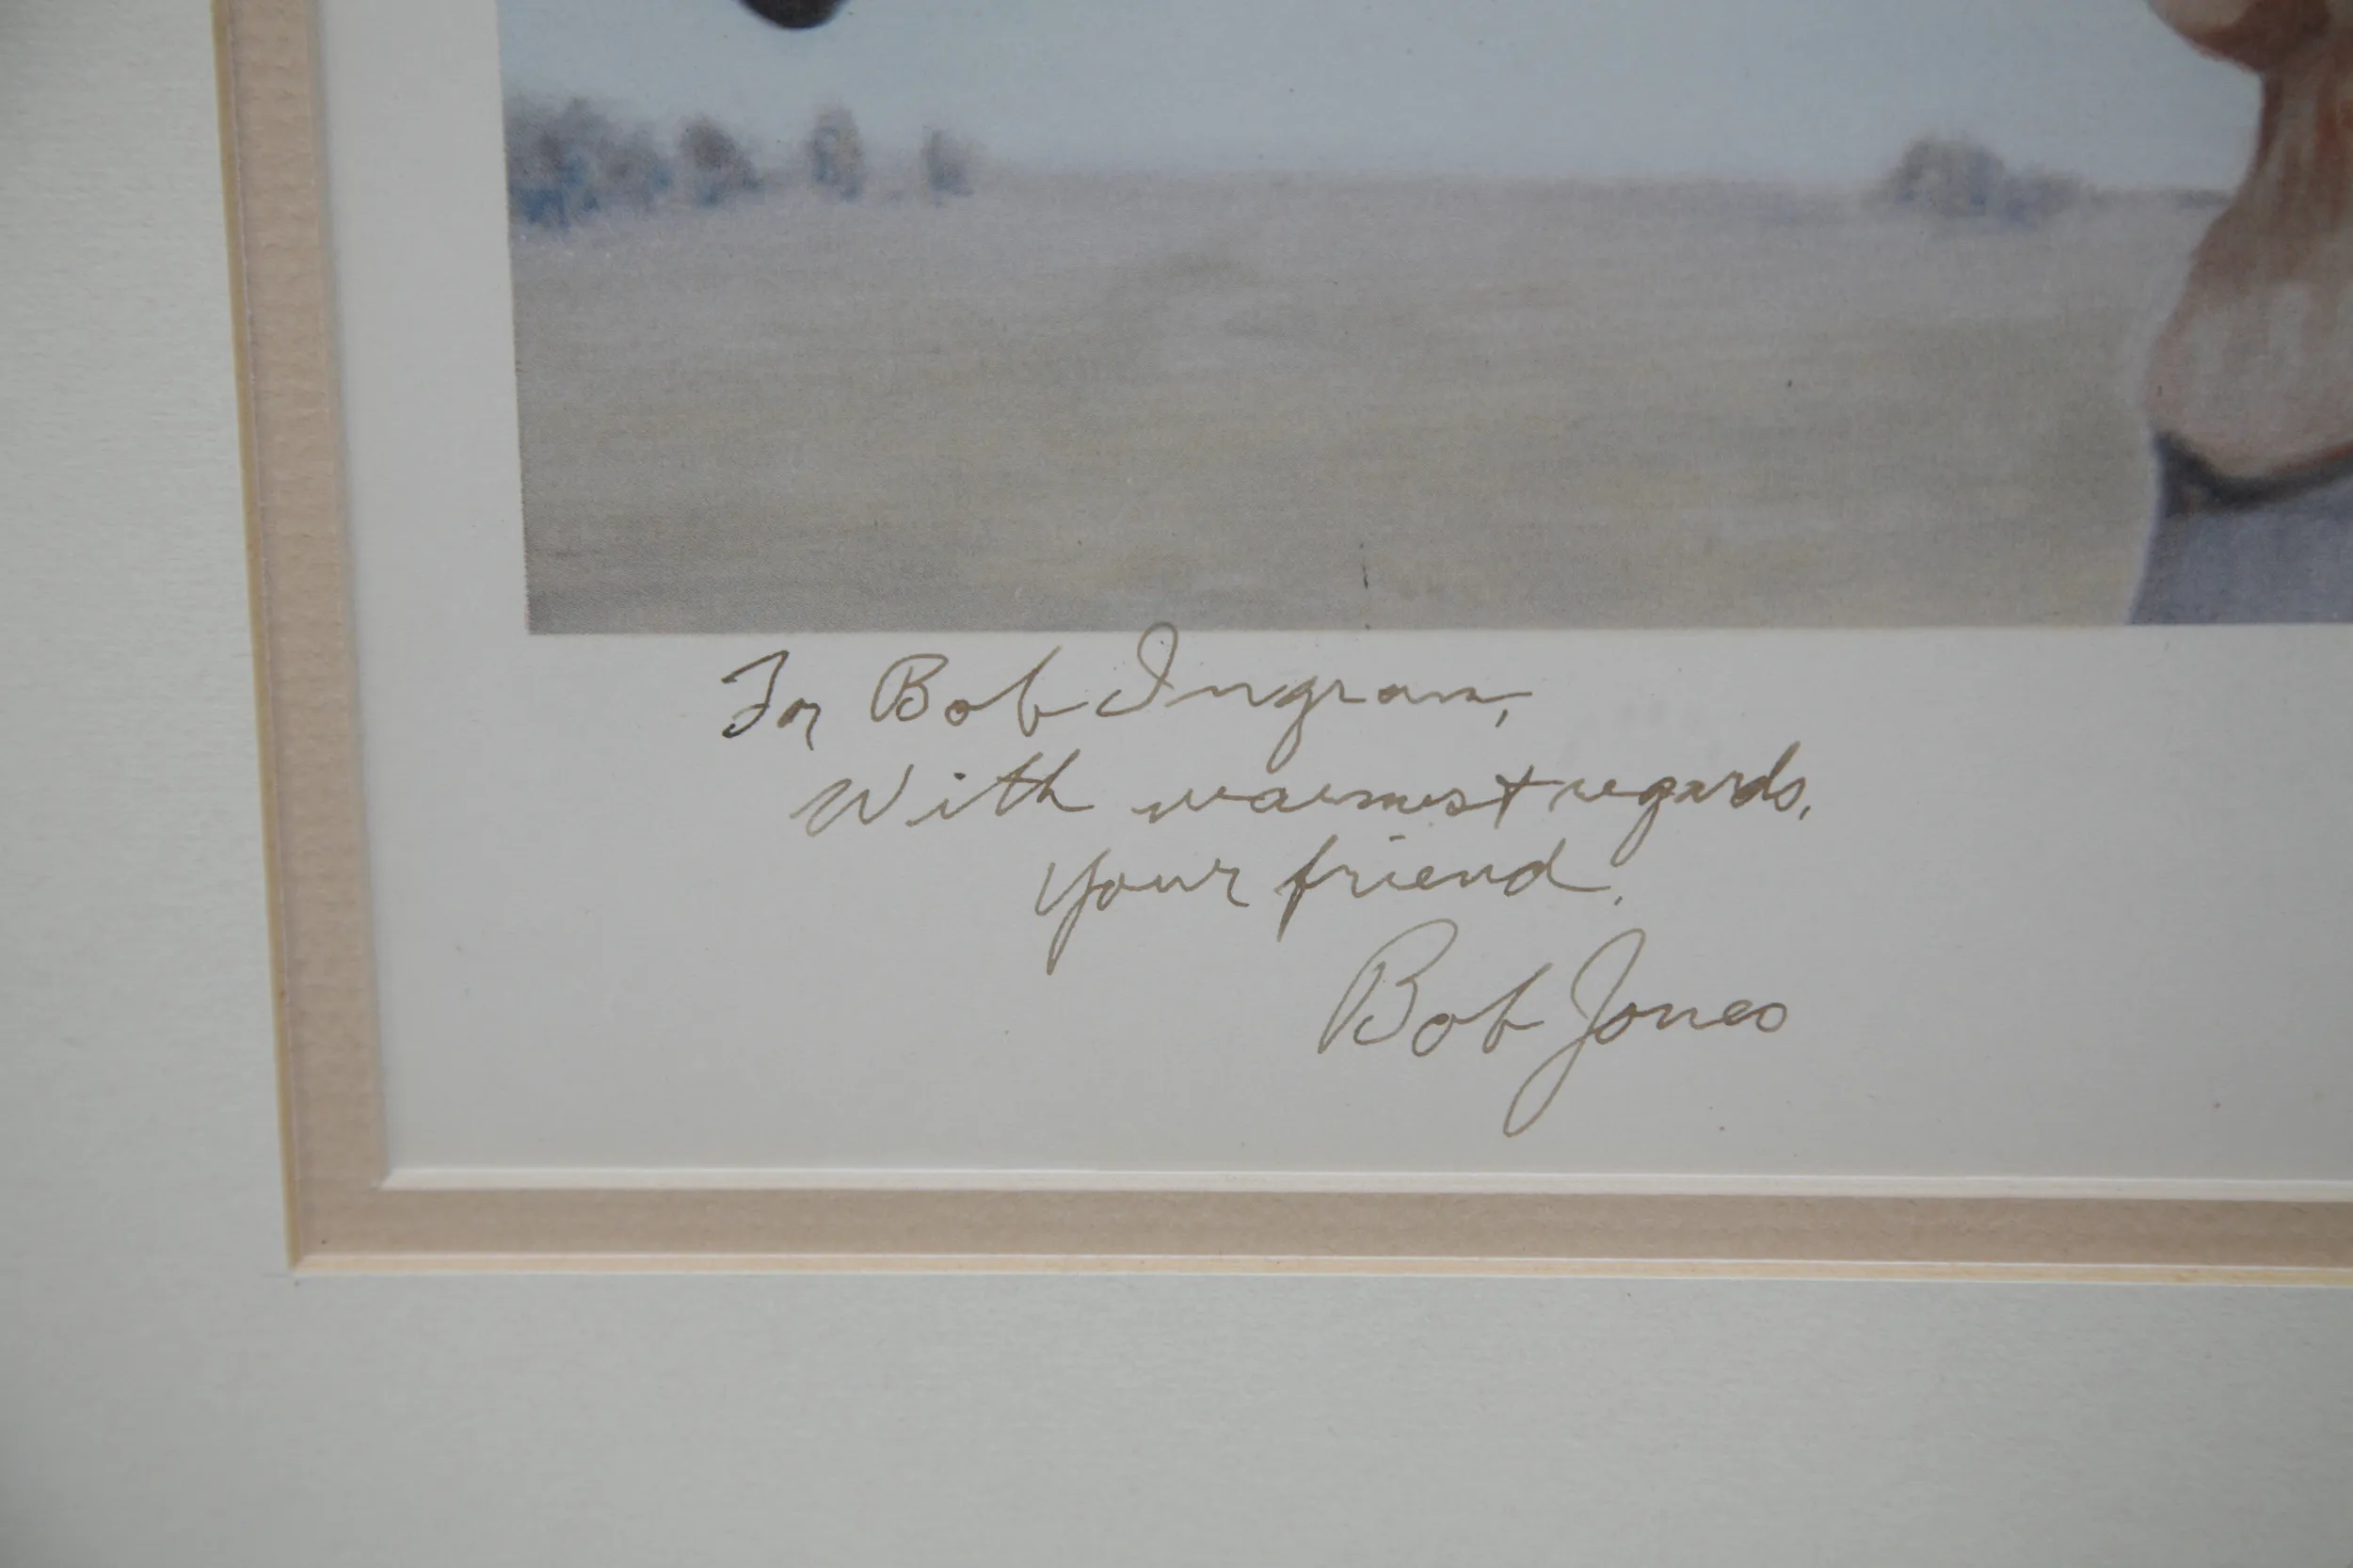 For Bob Ingram,
With warmest regards,
Your friend,
Bob Jones